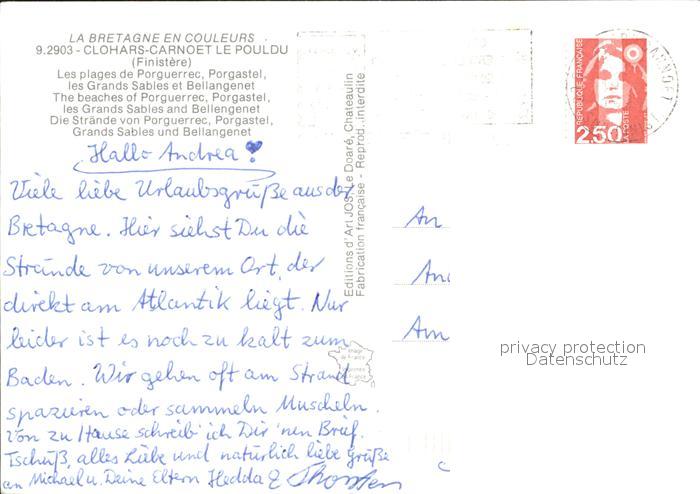 LA BRETAGNE EN COULEURS
9.2903 - CLOHARS-CARNOET LE POULDU
(Finistère)
Les plages de Porguerrec, Porgastel,
les Grands Sables et Bellangenet
The beaches of Porguerrec, Porgastel,
les Grands Sables and Bellangenet
Die Strände von Porguerrec, Porgastel,
Grands Sables und Bellangenet
Hallo Andrea!
Viele liebe Urlaubsgrüße aus der
Bretagne. Hier siehst Du die
Strände von unserem Ort, der
direkt am Atlantik liegt. Nur
leider ist es noch zu kalt zum
Baden. Wir gehen oft am Strand
spazieren oder sammeln Muscheln.
Von zu Hause schreib' ich Dir 'nen Brief.
Tschüß, alles Liebe und natürlich liebe Grüße
an Michael u. Deine Eltern Hedda & Thorsten
Editions d'Art JOS Le Doaré, Chateaulin
Fabrication française - Reprod. interdite
image
de France
REPUBLIQUE FRANÇAISE
2,50
LA POSTE
An
Am
privacy protection
Datenschutz